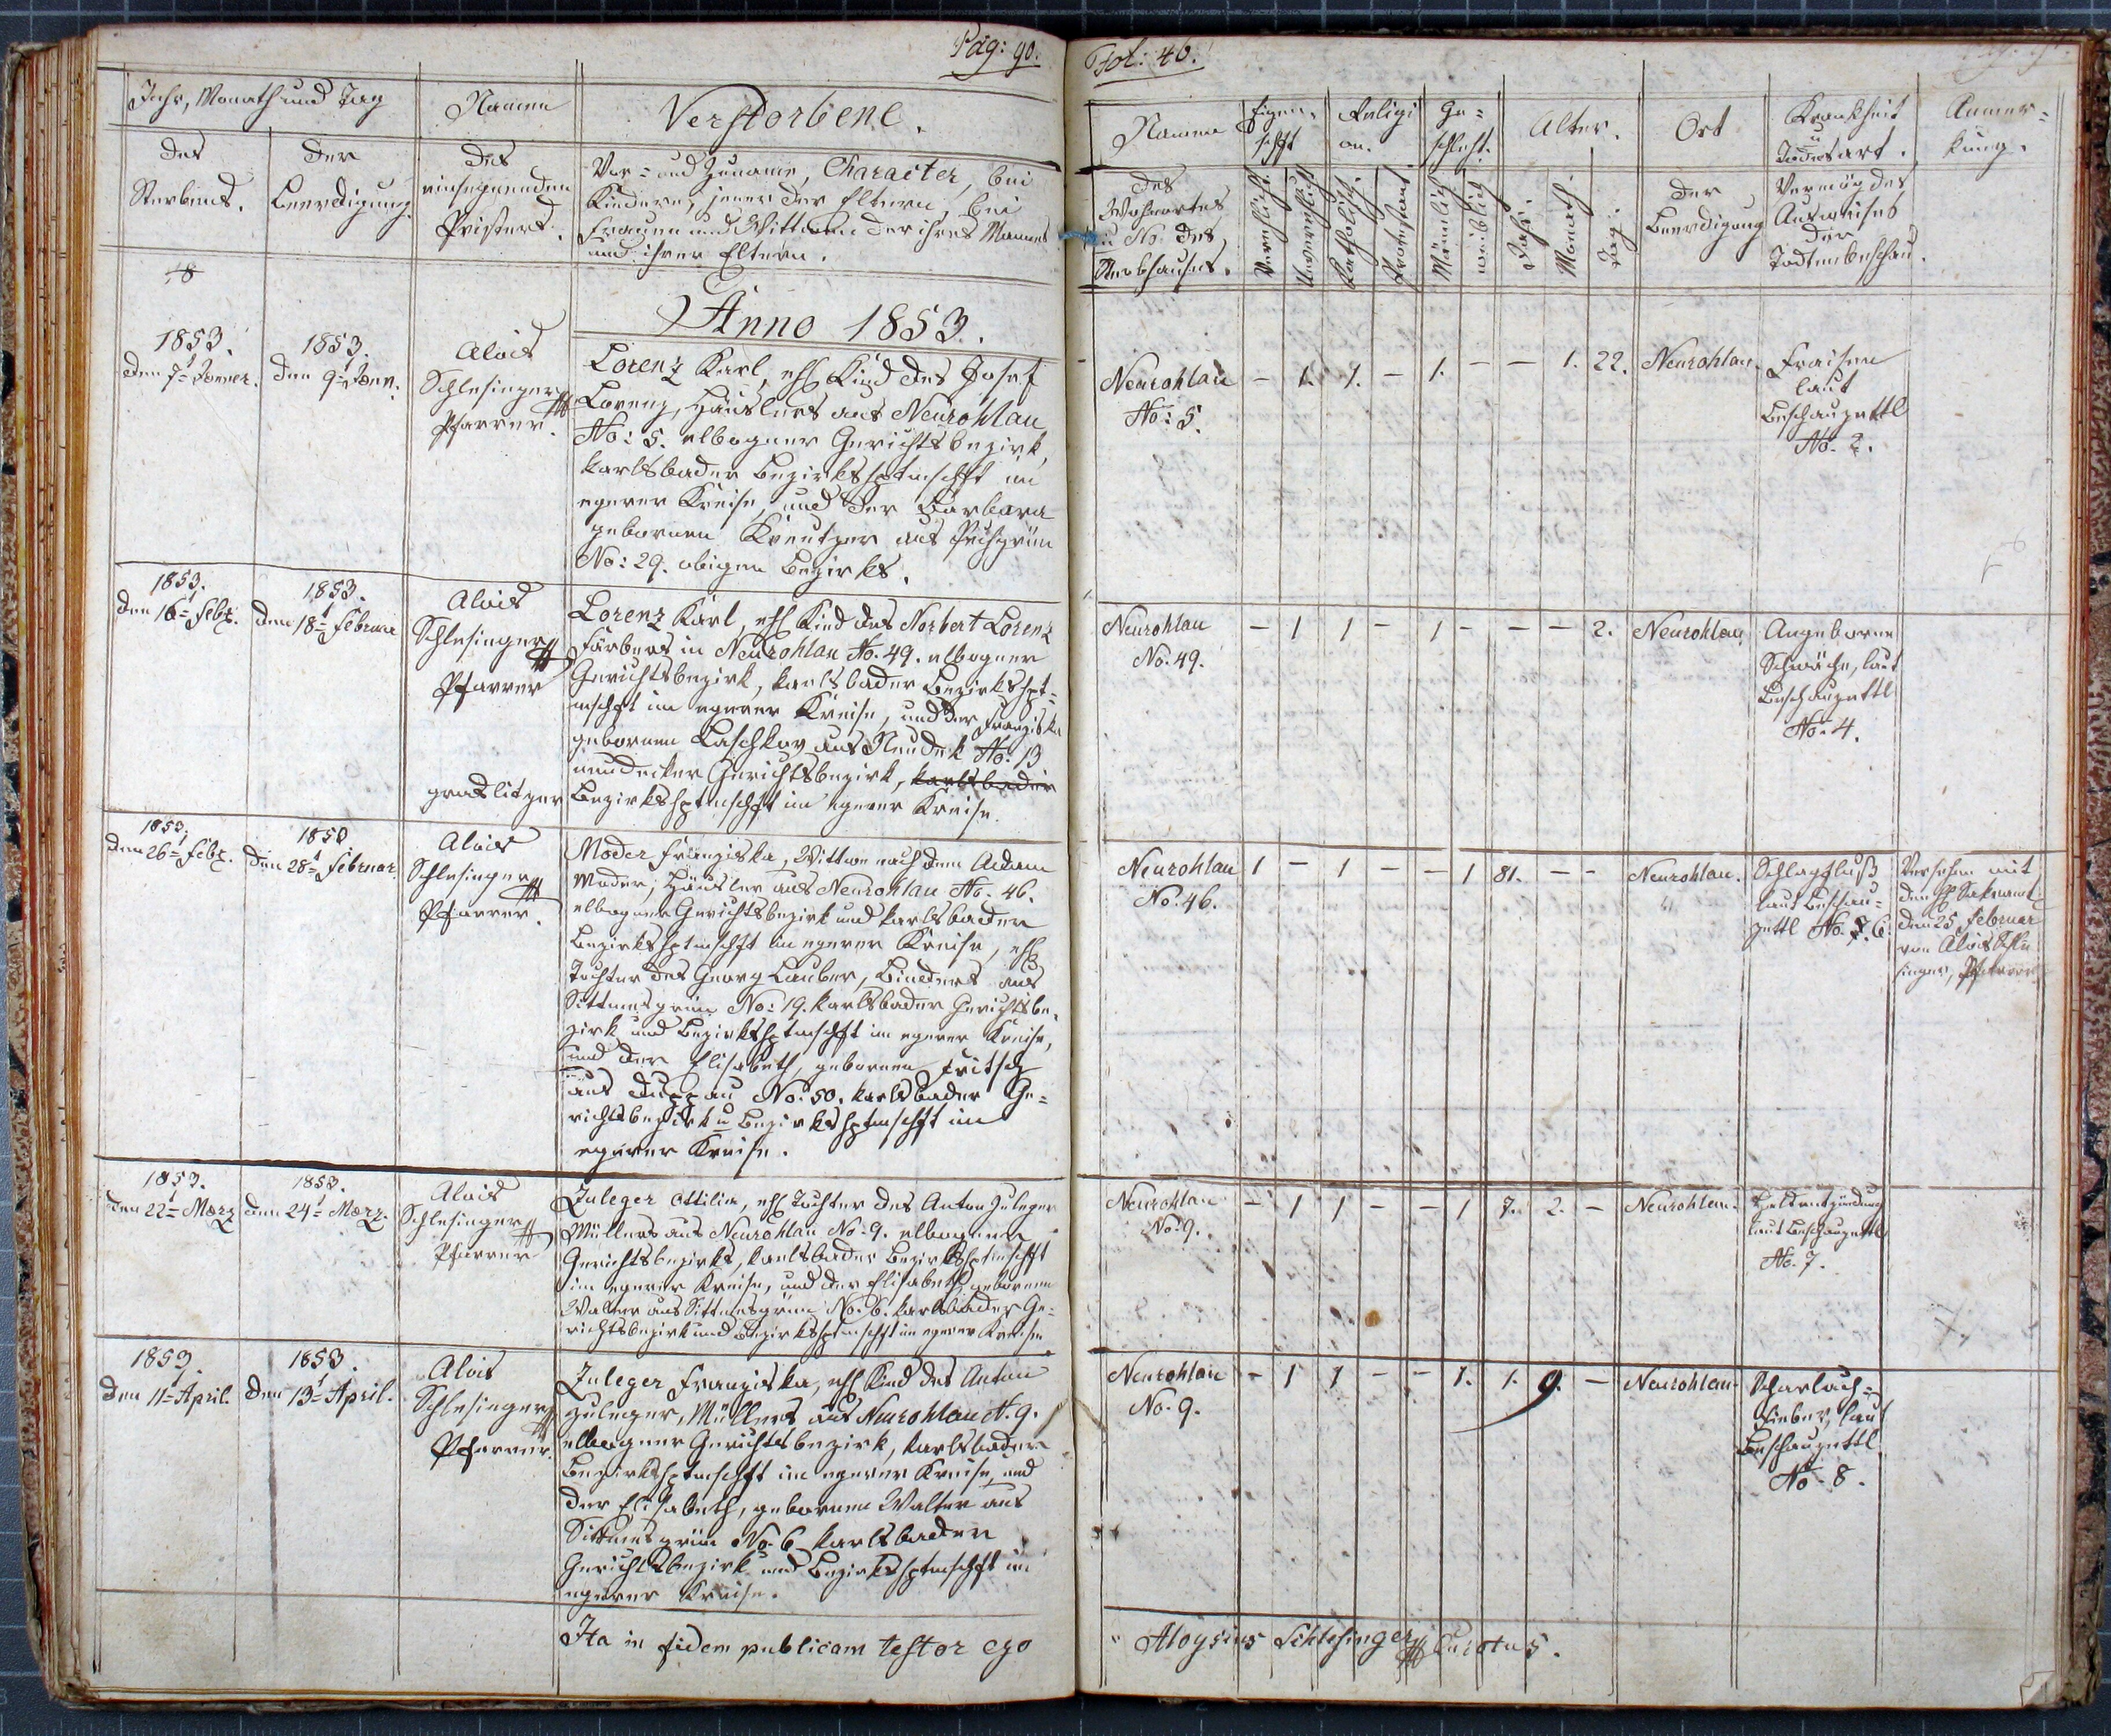 Pag: 90.
Jahr, Monath und Tag
Namen
Verstorbene.
des
Sterbens.
der
Beerdigung.
des
einsegnenden
Pristers.
Vor- und Zuname, Character, bei
Kindern, jener der Eltern, bei
Frauen und Wittwen der ihres Mannes
und ihrer Eltern.
18
Anno 1853.
1853.
den 7t Jänner.
1853.
den 9t Jänn.
Alois
Schlesinger
Pfarrer.
Lorenz Karl, ehl Kind des Josef
Lorenz, Häuslers aus Neurohlau
No: 5. elbogner Gerichtsbezirk,
karlsbader Bezirkshptmschft im
egerer Kreise, und der Barbara
gebornen Kreutzer aus Pechgrün
No: 29. obigen Bezirks.
1853.
den 16t Febr.
1853.
den 18t Februar
Alois
Schlesinger
Pfarrer
Lorenz Karl, ehl Kind des Norbert Lorenz
Färbers in Neurohlau No. 49. elbogner
Gerichtsbezirk, karlsbader Bezirkshpt-
mschft im egerer Kreise, und der Franziska
gebornen Laschkav aus Neudek No: 13
neudecker Gerichtsbezirk, karlsbader
graslitzer Bezirkshptmschft im egerer Kreise.
1853.
den 26t Febr.
1853
den 28t Februar.
Alois
Schlesinger
Pfarrer.
Moder Franziska, Wittwe nach dem Adam
Moder, Häusler aus Neurohlau No. 46.
elbogner Gerichtsbezirk und karlsbader
Bezirkshptmschft im egerer Kreise, ehl
Tochter des Georg Lauber, Binders aus
Sittmesgrün No: 19. karlsbader Gerichtsbe-
zirk und Bezirkshptmschft im egerer Kreise,
und der Elisabeth, gebornen Fritsch
aus Duppau No: 50. karlsbader Ge-
richtsbezirk u Bezirkshptmschft im
egerer Kreise.
1853.
den 22t März
1853.
den 24t März.
Alois
Schlesinger
Pfarrer
Zuleger Ottilia, ehl Tochter des Anton Zuleger
Müllers aus Neurohlau No. 9. elbogner
Gerichtsbezirks, karlsbader Bezirkshptmschft
im egerer Kreise, und der Elisabeth gebornen
Walter aus Sittmesgrün No. 6. karlsbader Ge-
richtsbezirk und Bezirkshptmschft im egerer Kreise
1853.
den 11t April.
1853.
den 13t April.
Alois
Schlesinger
Pfarrer.
Zuleger Franziska, ehl Kind des Anton
Zuleger, Müllers aus Neurohlau N. 9.
elbogner Gerichtsbezirk, karlsbader
Bezirkshptmschft im egerer Kreise, und
der Elisabeth, gebornen Walter aus
Sittmesgrün No. 6 karlsbader
Gerichtsbezirk und Bezirkshptmschft im
egerer Kreise.
Ita in fidem publicam testor ego
Fol: 46.
Namen
Eigen-
schft
Religi
on.
Ge-
schlecht.
Alter.
Ort
Krankheit
u
Todesart.
Anmer-
kung.
des
Wohnortes
u No. des
Sterbhauses.
Verehlicht.
Unverehlicht
Katholisch.
Protestant
Männlich
weiblich
Jahr.
Monath
Tag
der
Beerdigung
Vermög des
Ausweises
der
Todtenbeschau.
Neurohlau
No: 5.
- 1. 1. - 1. - - 1. 22.
Neurohlau.
Fraisen
laut
Beschauzettl
No. 2.
Neurohlau
No. 49.
- 1 1 - 1 - - - 2.
Neurohlau.
Angeborne
Schwäche, laut
Beschauzettl
No. 4.
Neurohlau
No. 46.
1 - 1 - - 1 81. - -
Neurohlau.
Schlagfluß
laut Beschau-
zettl No. 6.
Versehen mit
den hh Sakramt
den 25 Februar
von Alois Schle
singer, Pfarrer
Neurohlau
No. 9.
- 1 1 - - 1 7. 2. -
Neurohlau.
laut Beschauzettl
No. 7.
Neurohlau
No. 9.
- 1 1 - - 1. 1. 9. -
Neurohlau.
Scharlach-
fieber, laut
Beschauzettl
No. 8.
Aloysius Schlesinger Curatus.